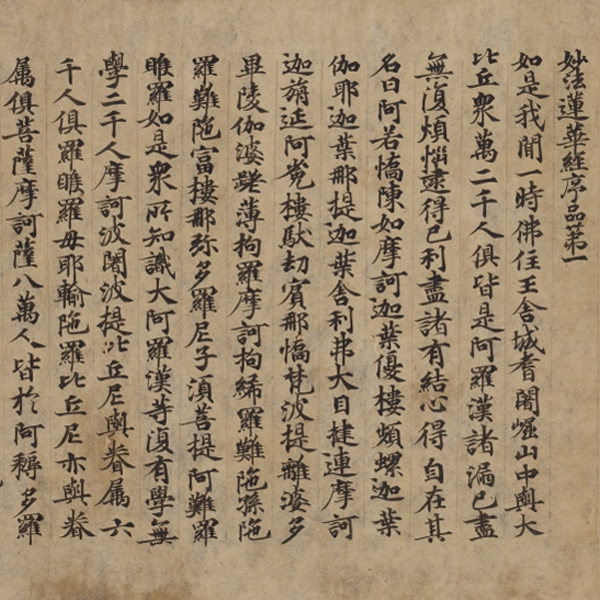 妙法蓮華經序品第一
如是我聞一時佛住王舍城耆闍崛山中與大
比丘衆萬二千人俱皆是阿羅漢諸漏已盡
無復煩惱逮得已利盡諸有結心得自在其
名曰阿若憍陳如摩訶迦葉優樓頻螺迦葉
伽耶迦葉那提迦葉舍利弗大目揵連摩訶
迦旃延阿㝹樓馱劫賓那憍梵波提離婆多
畢陵伽婆蹉薄拘羅摩訶拘絺羅難陁孫陁
羅難陁富樓那弥多羅尼子湏菩提阿難羅
睺羅如是衆所知識大阿羅漢等復有學無
學二千人摩訶波闍波提比丘尼與眷属六
千人俱羅睺羅母耶輸陁羅比丘尼亦與眷
属俱菩薩摩訶薩八萬人皆於阿耨多羅